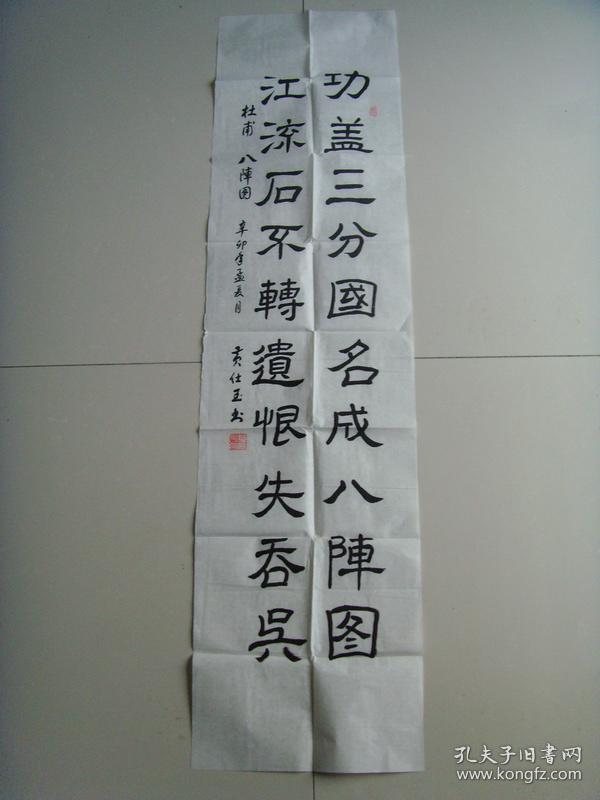 功盖三分國名成八陣图
江流石不轉遺恨失吞呉
杜甫 八陣图 辛卯年孟夏月 黄仕玉书
孔夫子旧书网
www.kongfz.com